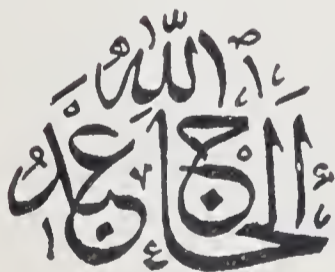 الحاج عبد الله